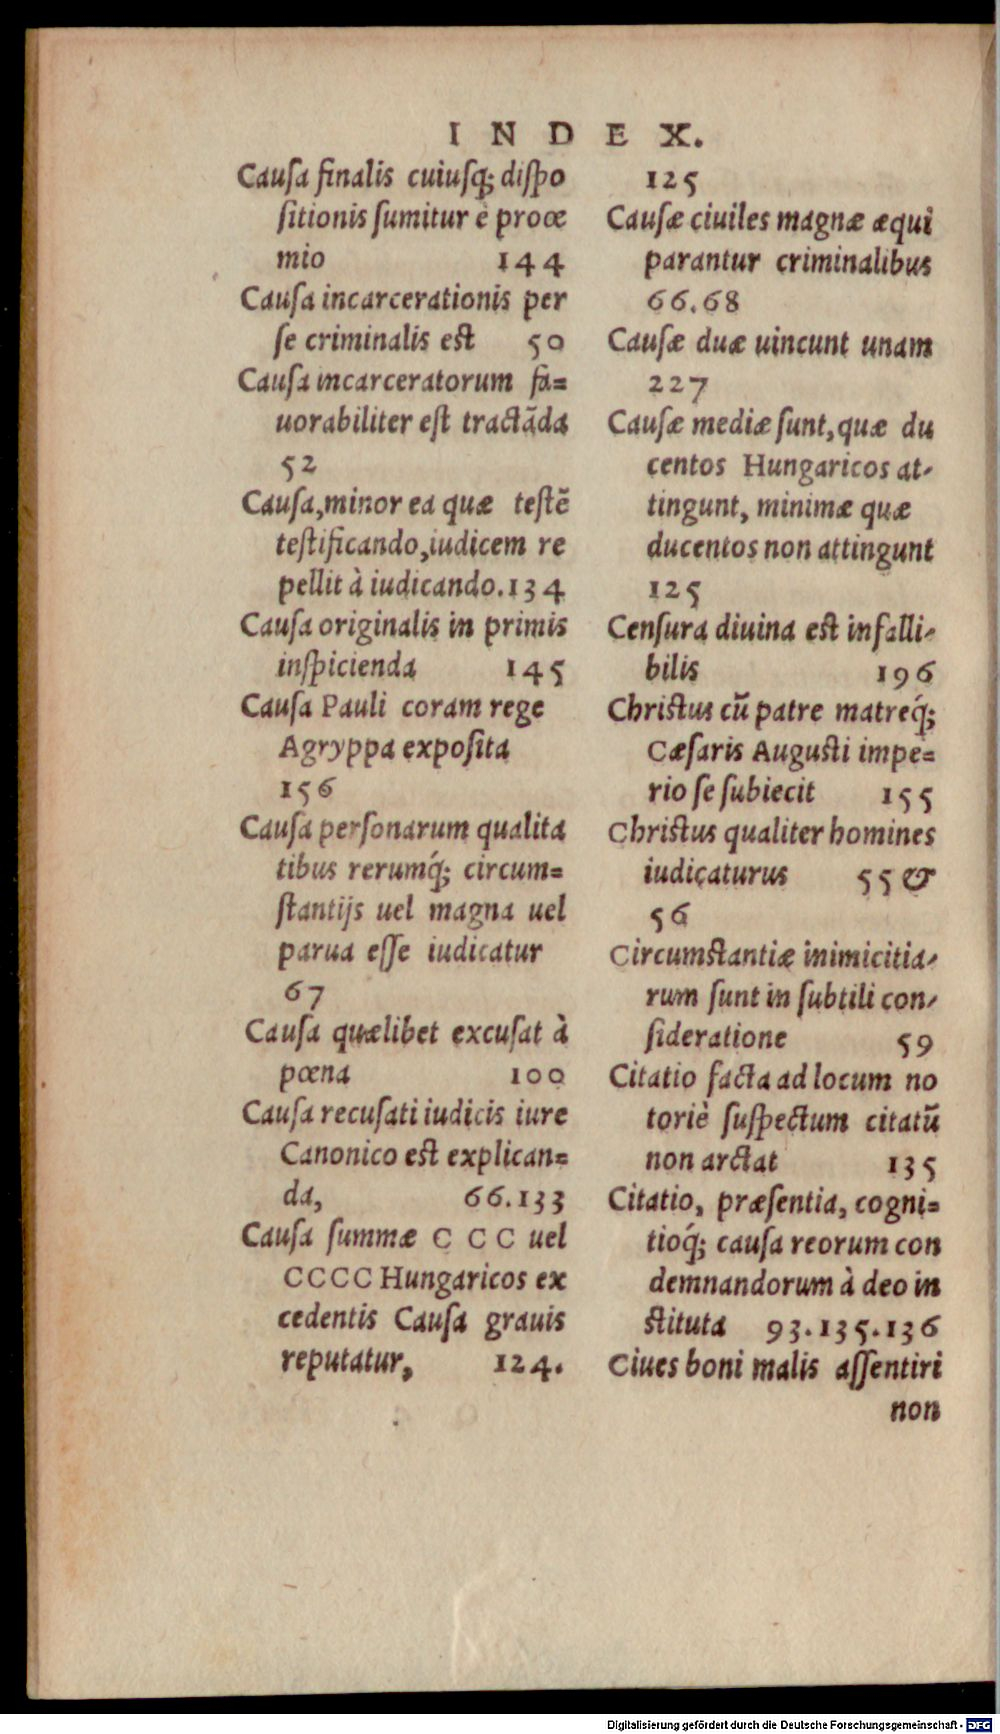 INDEX.
Cauſa finalis cuiuſq́; diſpo
ſitionis ſumitur è proœ
mio 144
Cauſa incarcerationis per
ſe criminalis est 50
Cauſa incarceratorum fa=
uorabiliter eſt tractãda
52
Cauſa, minor ea quæ teſtẽ
teſtificando, iudicem re
pellit à iudicando. 134
Cauſa originalis in primis
inſpicienda 145
Cauſa Pauli coram rege
Agryppa expoſita
156
Cauſa perſonarum qualita
tibus rerumq́; circum=
ſtantijs uel magna uel
parua eſſe iudicatur
67
Cauſa quælibet excuſat à
pœna 100
Cauſa recuſati iudicis iure
Canonico est explican=
da, 66.133
Cauſa ſummæ C C C uel
CCCC Hungaricos ex
cedentis Cauſa grauis
reputatur, 124.
125
Cauſæ ciuiles magnæ æqui
parantur criminalibus
66.68
Cauſæ duæ uincunt unam
227
Cauſæ mediæ ſunt, quæ du
centos Hungaricos at-
tingunt, minimæ quæ
ducentos non attingunt
125
Cenſura diuina est infalli-
bilis 196
Christus cũ patre matreq́;
Cæſaris Augusti impe=
rio se ſubiecit 155
Christus qualiter homines
iudicaturus 55 &
56
Circumstantiæ inimicitia-
rum ſunt in ſubtili con-
ſideratione 59
Citatio facta ad locum no
toriè ſuſpectum citatũ
non arctat 135
Citatio, præſentia, cogni=
tioq́; cauſa reorum con
demnandorum à deo in
stituta 93.135.136
Ciues boni malis aſſentiri
non
Digitalisierung gefördert durch die Deutsche Forschungsgemeinschaft - DFG